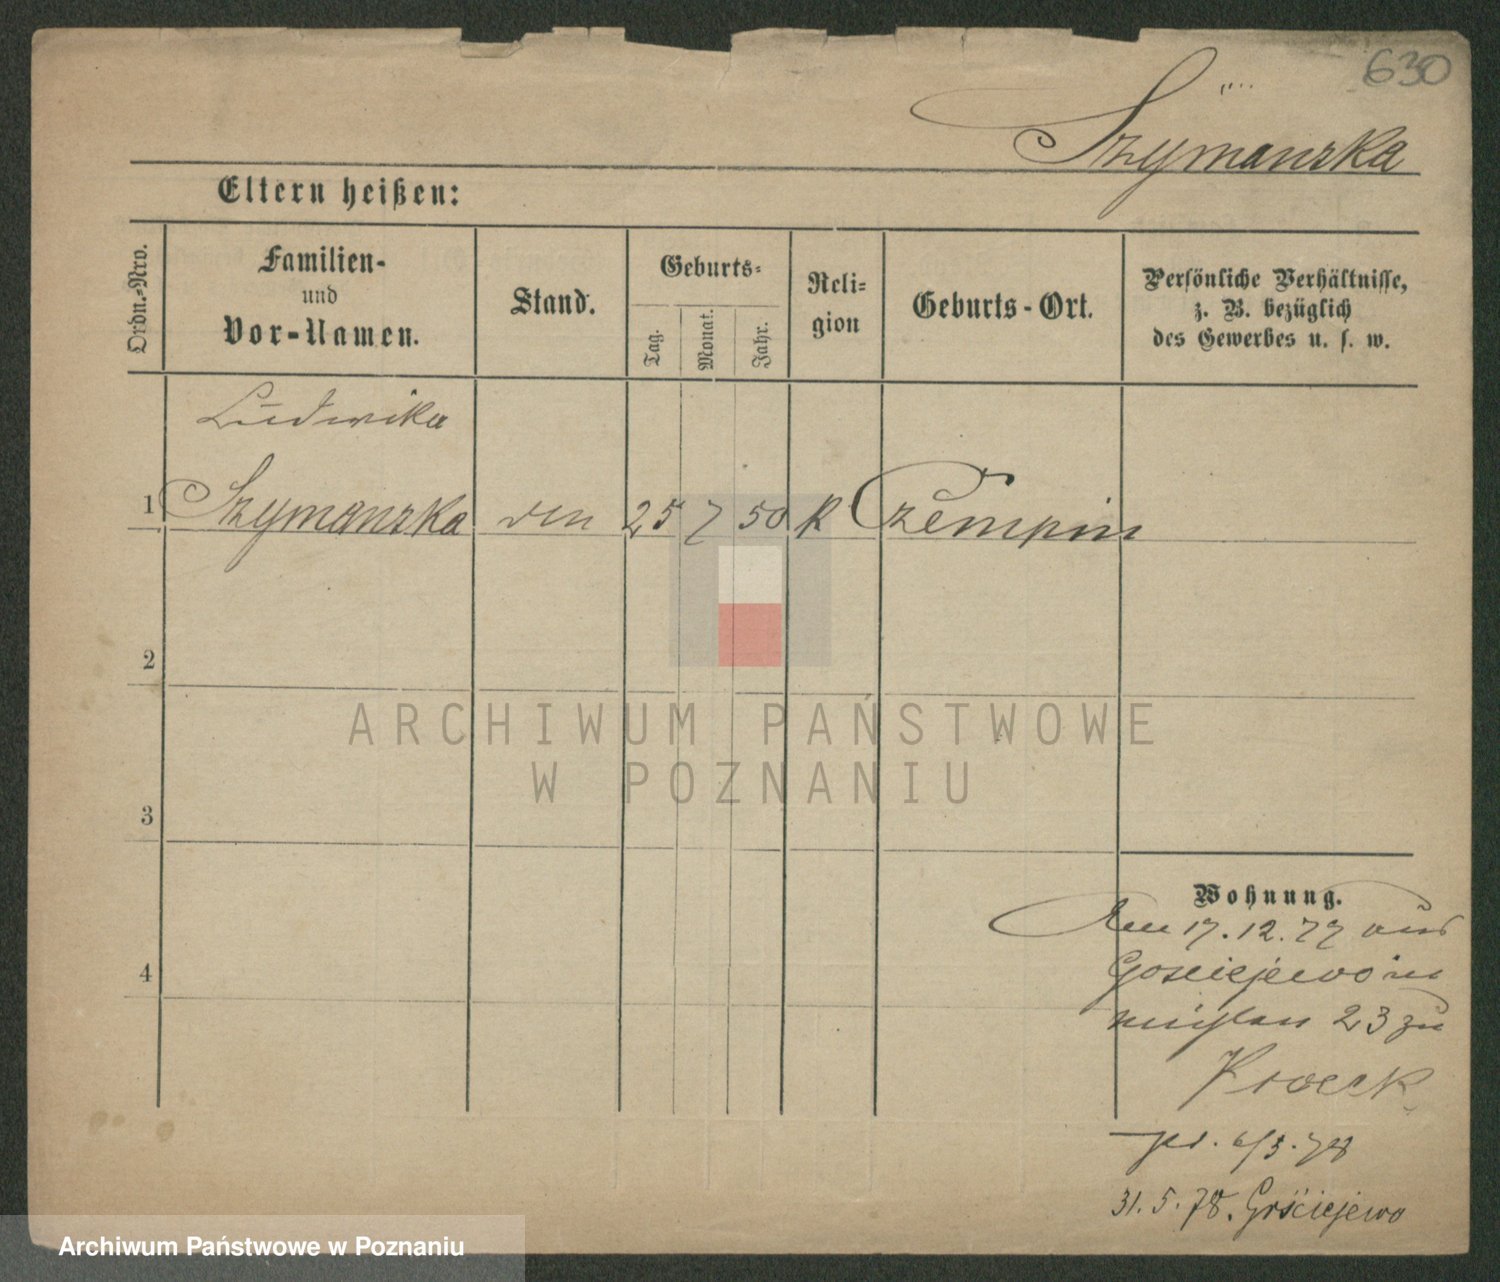 630
Szymanska
Eltern heißen:
Ordn.=Nro.
Familien-
und
Vor-Namen.
Stand.
Geburts=
Tag.
Monat.
Jahr.
Reli=
gion
Geburts-Ort.
Persönliche Verhältnisse,
z. B. bezüglich
des Gewerbes u. s. w.
Ludwika
1 Szymanska den 25 7 50 K Czempin
2
3
4
ARCHIWUM PAŃSTWOWE
W POZNANIU
Wohnung.
Am 17.12.77 aus
Gosciejewo
23 zu
31.5.78. Gościejewo
Archiwum Państwowe w Poznaniu